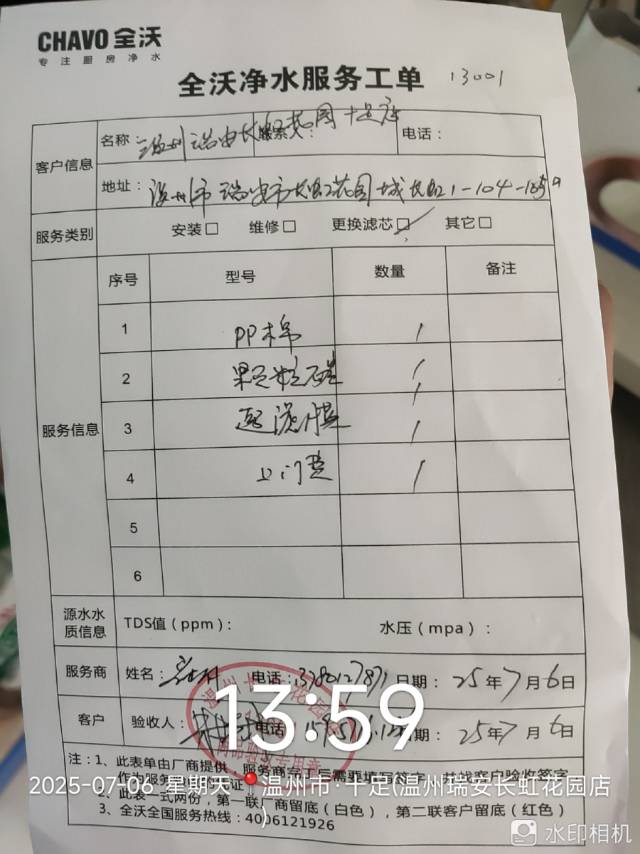 CHAVO 全沃
专注厨房净水
全沃净水服务工单 13001
客户信息
名称: 温州瑞安长虹花园十足店 联系人: 电话:
地址: 温州市瑞安市长虹花园 城长虹1-104-105
服务类别 安装□ 维修□ 更换滤芯☑ 其它□
服务信息
序号 型号 数量 备注
1 PP棉 1
2 颗粒碳 1
3 超滤膜 1
4 上门费 1
5
6
源水水质信息 TDS值（ppm）: 水压（mpa）:
服务商 姓名: 电话: 日期: 25年7月6日
客户 验收人: 电话: 日期: 25年7月6日
13:59
注：1、此表单由厂商提供
2025-07-06 星期天 温州市·十足(温州瑞安长虹花园店)
2、此表一式两份，第一联厂商留底（白色），第二联客户留底（红色）
3、全沃全国服务热线：4006121926
水印相机